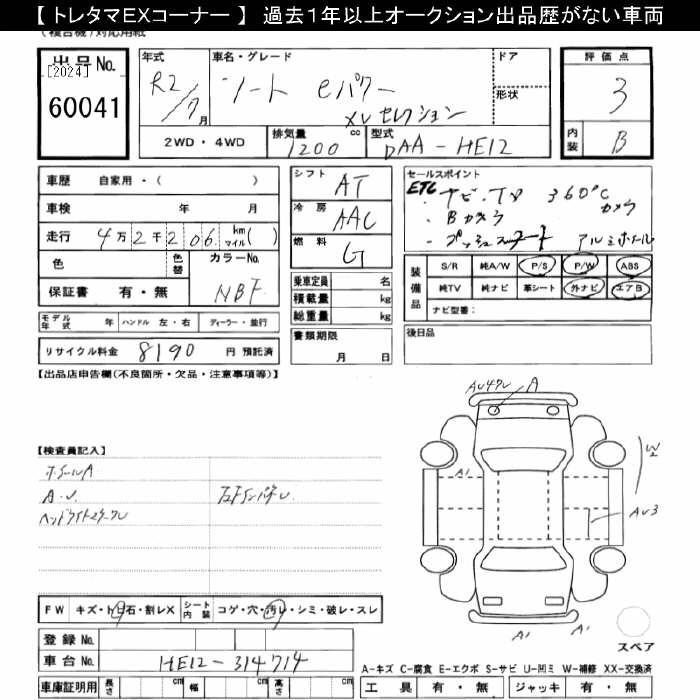 【 トレタマEXコーナー 】 過去1年以上オークション出品歴がない車両
(複合機)対応用紙
出品No.
[2024]
60041
年式
R2/7月
車名・グレード
ノート eパワー
XVセレクション
ドア
形状
2WD・4WD
排気量 1200 cc
型式 DAA-HE12
評価点
3
内装 B
車歴 自家用・( )
車検 年 月
走行 4万2千206 km マイル( )
色 色替 カラーNo.
NBF
保証書 有・無
モデル年式 年 ハンドル 左・右 ディーラー・並行
リサイクル料金 8190 円 預託済
シフト AT
冷房 AAC
燃料 G
乗車定員 名
積載量 kg
総重量 kg
書類期限
月 日
セールスポイント
ETC ナビ・TV 360°C カメラ
・Bカメラ
・プッシュスタート アルミホイール
装備品
S/R 純A/W P/S P/W ABS
純TV 純ナビ 革シート 外ナビ エアB
ナビ型番:
後日品
【出品店申告欄(不良箇所・欠品・注意事項等)】
【検査員記入】
ホイールA
A.U.
A
A1
W2
AU3
A1
A1
FW キズ・ト凹石・割レX
シート内装 コゲ・穴・汚レ・シミ・破レ・スレ
登録No.
車台No. HE12-314714
車庫証明用 長さ cm 幅 cm 高さ cm
スペア
A-キズ C-腐食 E-エクボ S-サビ U-凹ミ W-補修 XX-交換済
工具 有・無 ジャッキ 有・無